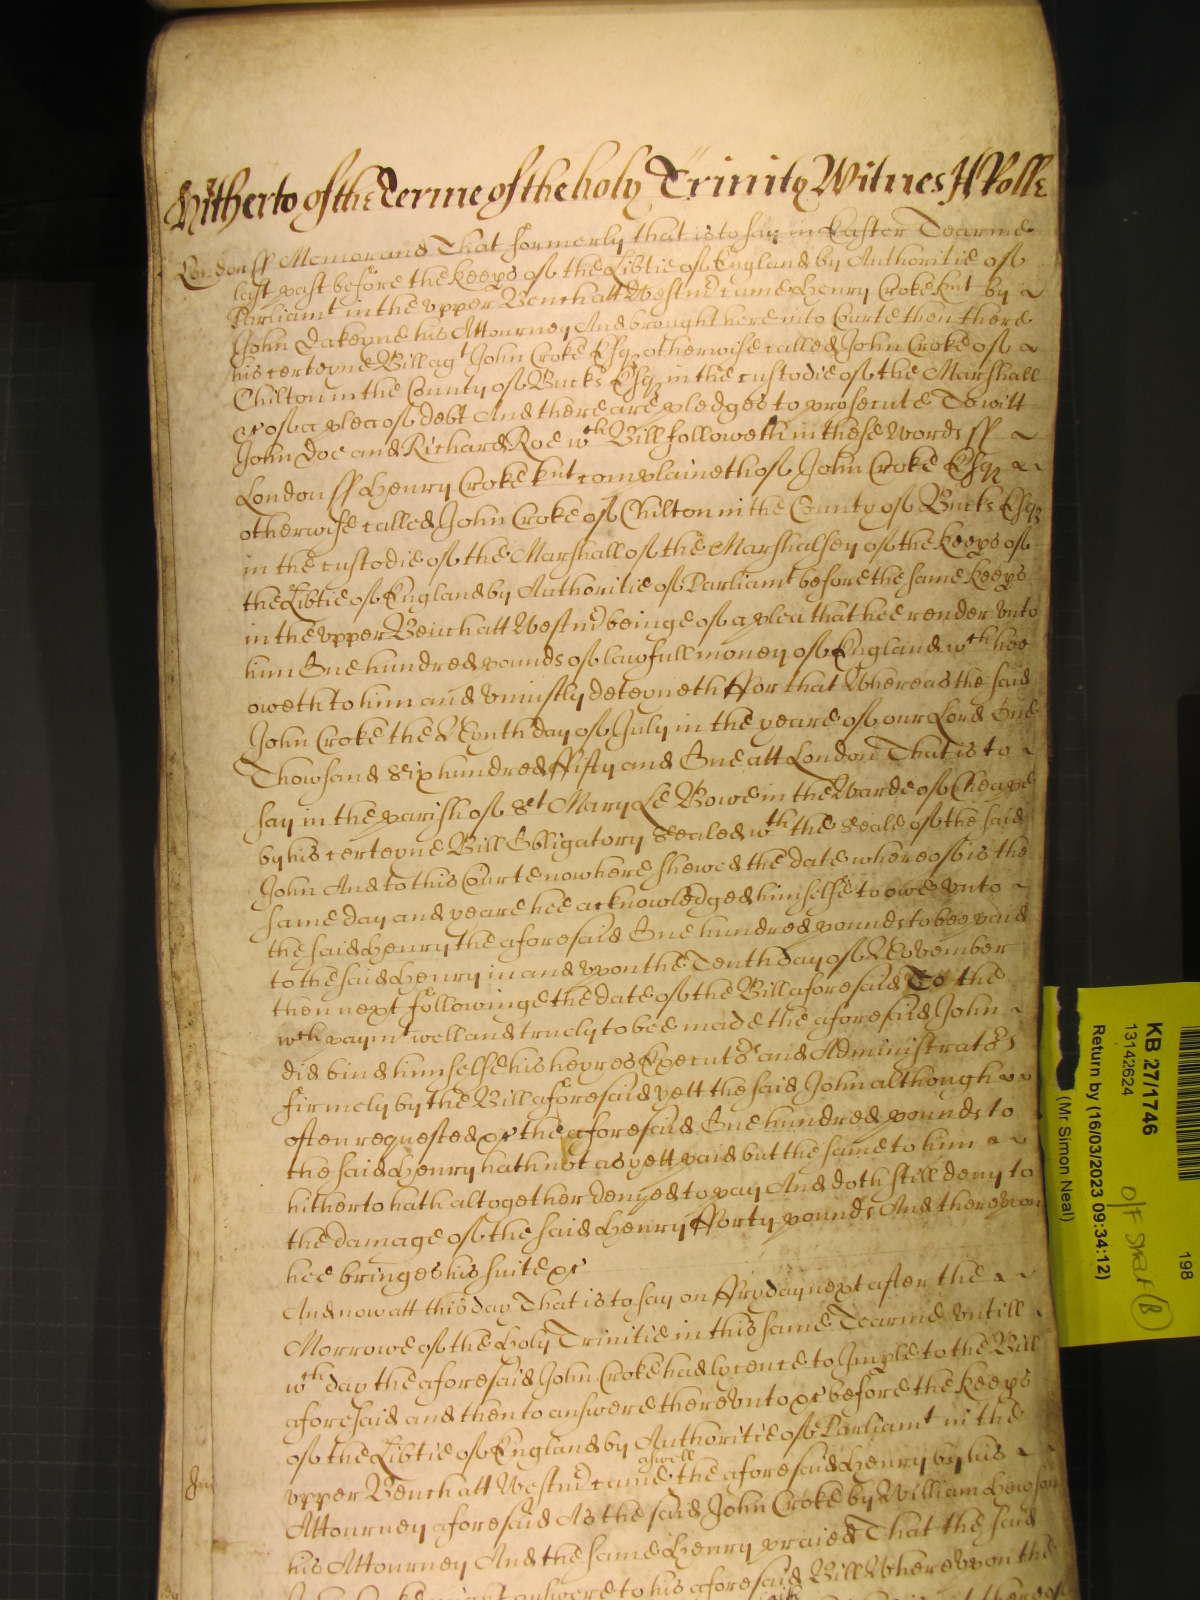 Hitherto of the Terme of the holy Trinity Witnes H Rolle
London ss Memorand That formerly that is to say in Easter Tearme
last past before the Keeps of the Libtie of England by Authoritie of
Parliamt in the vpper Bench att Westmr came Henry Croke knt by
John Dakeyne his Attourney And brought here into Courte then there
his certeyne Bill agt John Croke Esqr otherwise called John Croke of
Chilton in the County of Bucks Esqr in the custodie of the Marshall
&c of a plea of debt And there are pledges to prosecute To witt
John Doe and Richard Roe wch Bill followeth in these words ss
London ss Henry Croke knt complaineth of John Croke Esqr
otherwise called John Croke of Chilton in the County of Bucks Esqr
in the custodie of the Marshall of the Marshalsey of the Keeps of
the Libtie of England by Authoritie of Parliamt before the same Keeps
in the vpper Bench att Westmr beinge of a plea that hee render vnto
him One hundred pounds of lawfull money of England wch hee
oweth to him and vniustly deteyneth ffor that Whereas the said
John Croke the Nynth day of July in the yeare of our Lord One
Thowsand Six hundred ffifty and One att London That is to
say in the parish of St Mary Le Bowe in the Warde of Cheape
by his certeyne Bill Obligatory Sealed wth the Seale of the said
John And to this Courte now here shewed the date whereof is the
same day and yeare hee acknowledged himselfe to owe vnto
the said Henry the aforesaid One hundred pounds to bee paid
to the said Henry in and vpon the Tenth day of November
then next followinge the date of the Bill aforesaid To the
wch paymt well and truely to bee made the aforesaid John
did bind himselfe his heyres Executors and Administrators
firmely by the Bill aforesaid yett the said John although
often requested &c the aforesaid One hundred pounds to
the said Henry hath not as yett paid but the same to him
hitherto hath altogether denyed to pay And doth still deny to
the damage of the said Henry fforty pounds And thereupon
hee bringes his suite &c
And now att this day That is to say on ffryday next after the
Morrowe of the Holy Trinitie in this same Tearme vntill
wch day the aforesaid John Croke had lycence to Imple to the Bill
aforesaid and then to answere therevnto &c before the Keeps
of the Libtie of England by Authoritie of Parliamt in the
aswell
vpper Bench att Westmr came the aforesaid Henry by his
Attourney aforesaid As the said John Croke by William Hewson
his Attourney And the same Henry praied That the said
answere to his aforesaid Bill Wherevpon the
KB 27/1746
13142624
Return by (16/03/2023 09:34:12)
(Mr Simon Neal)
198